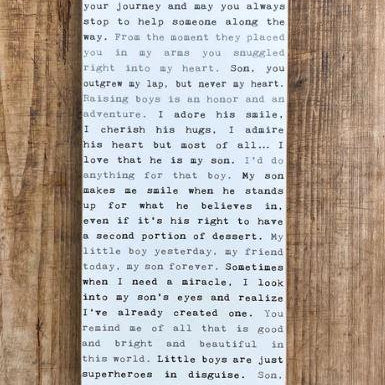 your journey and may you always
stop to help someone along the
way. From the moment they placed
you in my arms you snuggled
right into my heart. Son, you
outgrew my lap, but never my heart.
Raising boys is an honor and an
adventure. I adore his smile,
I cherish his hugs, I admire
his heart but most of all... I
love that he is my son. I'd do
anything for that boy. My son
makes me smile when he stands
up for what he believes in,
even if it's his right to have
a second portion of dessert. My
little boy yesterday, my friend
today, my son forever. Sometimes
when I need a miracle, I look
into my son's eyes and realize
I've already created one. You
remind me of all that is good
and bright and beautiful in
this world. Little boys are just
superheroes in disguise. Son,